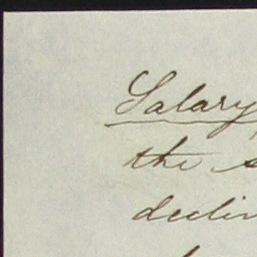 Salary
the
declin